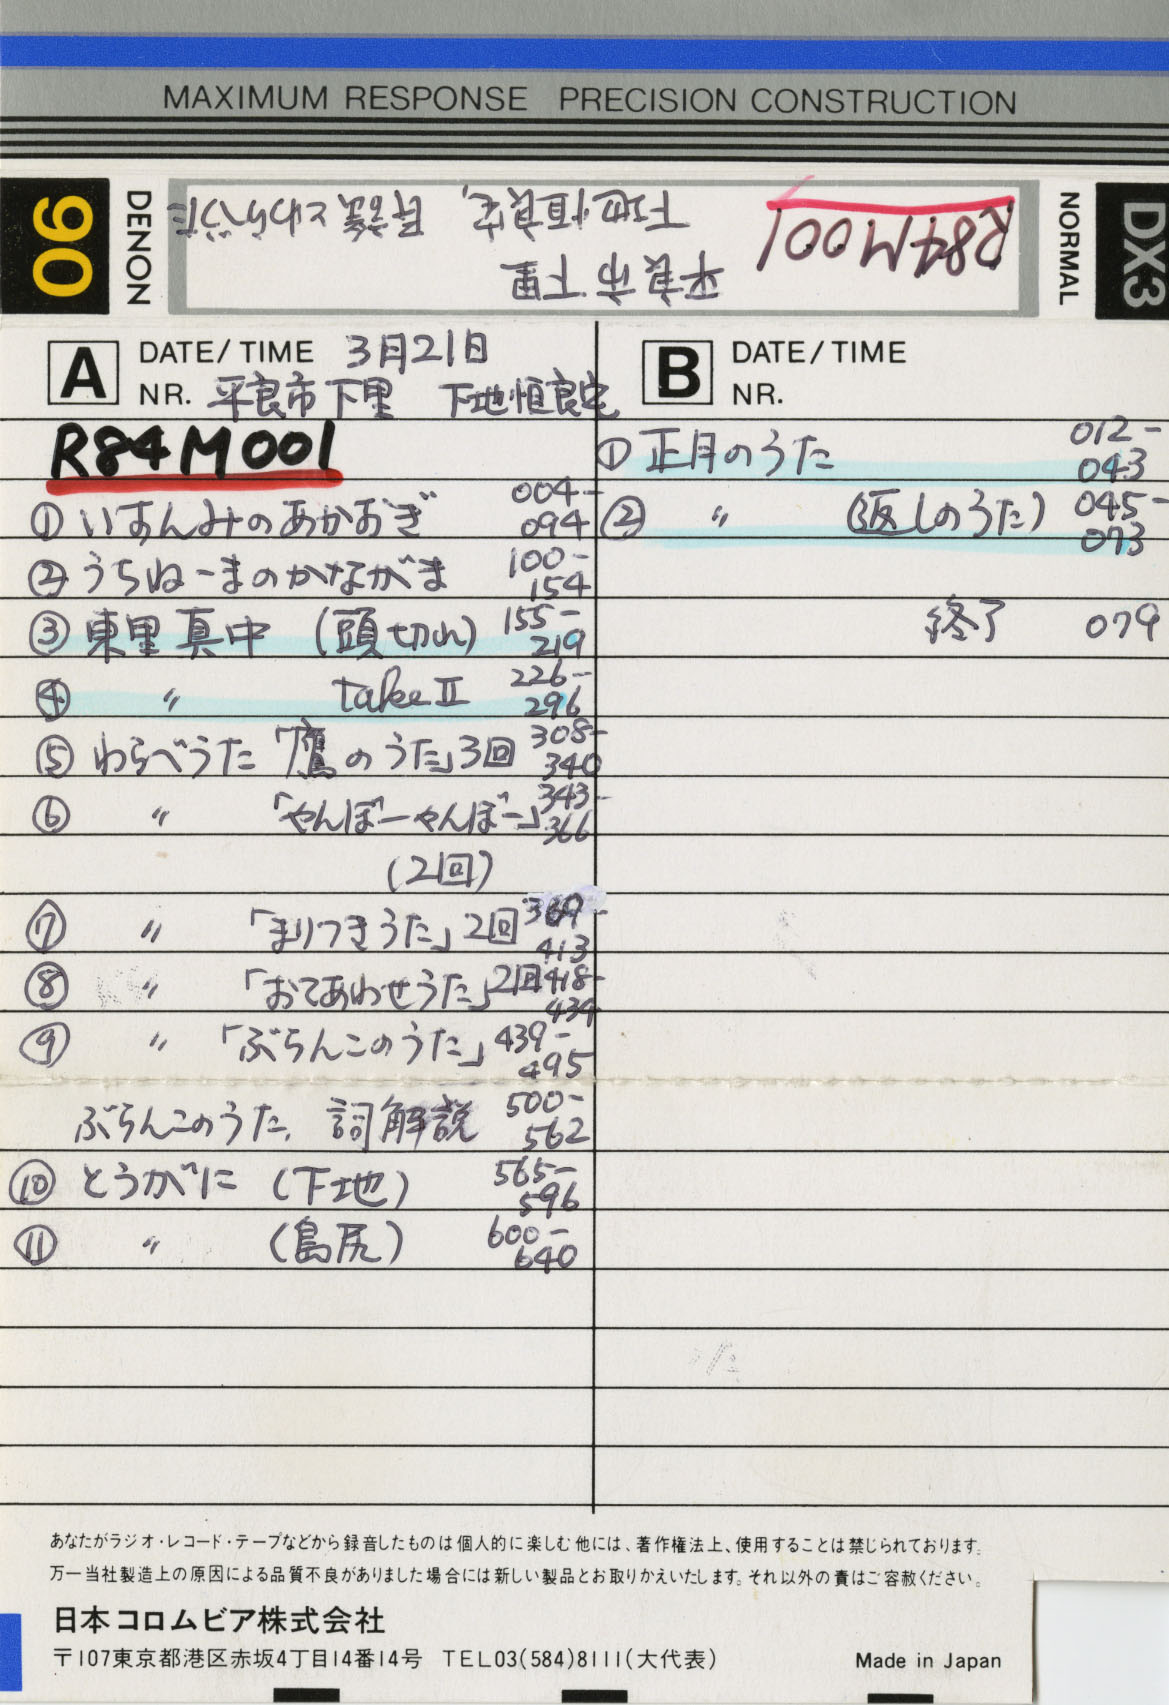 MAXIMUM RESPONSE PRECISION CONSTRUCTION
90
DENON
平良市下里
下地恒良宅, 民謡とわらべうた
R84M001
NORMAL
DX3
A
DATE/TIME 3月21日
NR. 平良市下里 下地恒良宅
R84M001
① いすんみのあかおぎ 004-094
② うちねーまのかながま 100-154
③ 東里真中 (頭切れ) 155-219
④ 〃 take II 226-296
⑤ わらべうた「鷹のうた」3回 308-340
⑥ 〃 「やんぼーやんぼー」 343-366
(2回)
⑦ 〃 「まりつきうた」2回 369-413
⑧ 〃 「おてあわせうた」2回 418-434
⑨ 〃 「ぶらんこのうた」 439-495
ぶらんこのうた, 詞解説 500-562
⑩ とうがに (下地) 565-596
⑪ 〃 (島尻) 600-640
B
DATE/TIME
NR.
① 正月のうた 012-043
② 〃 (返しのうた) 045-073
終了 079
あなたがラジオ・レコード・テープなどから録音したものは個人的に楽しむ他には、著作権法上、使用することは禁じられております。
万一当社製造上の原因による品質不良がありました場合には新しい製品とお取りかえいたします。それ以外の責はご容赦ください。
日本コロムビア株式会社
〒107東京都港区赤坂4丁目14番14号 TEL03(584)8111(大代表)
Made in Japan